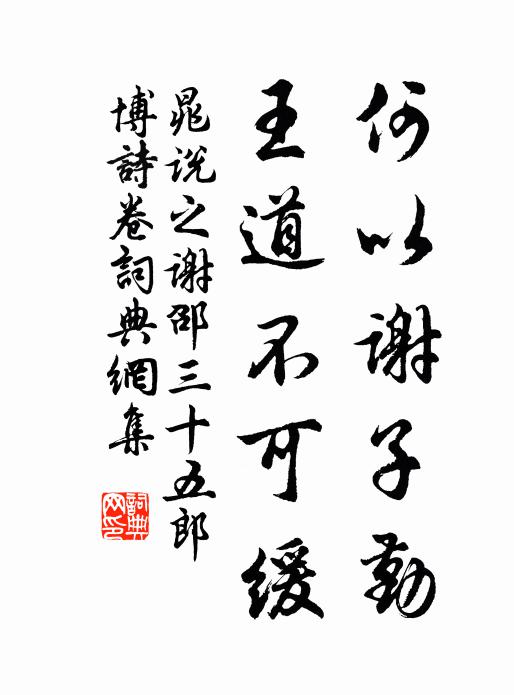 何以謝子勤
王道不可緩
晁説之謝邵三十五郎
博詩卷詞典網集
詞典網印